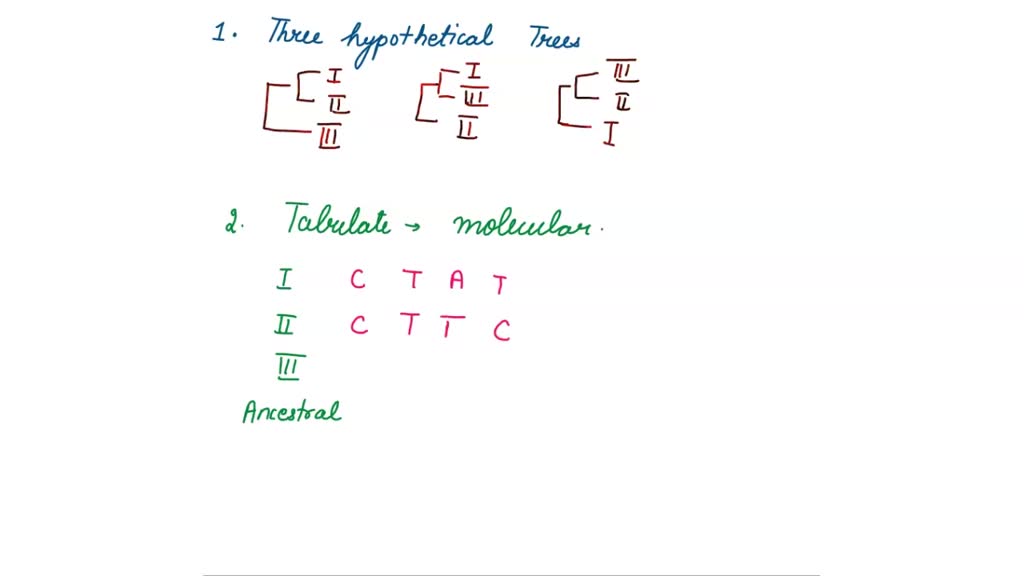 1. Three hypothetical Trees
I I III
II III II
III II I
2. Tabulate → molecular.
I C T A T
II C T T C
III
Ancestral